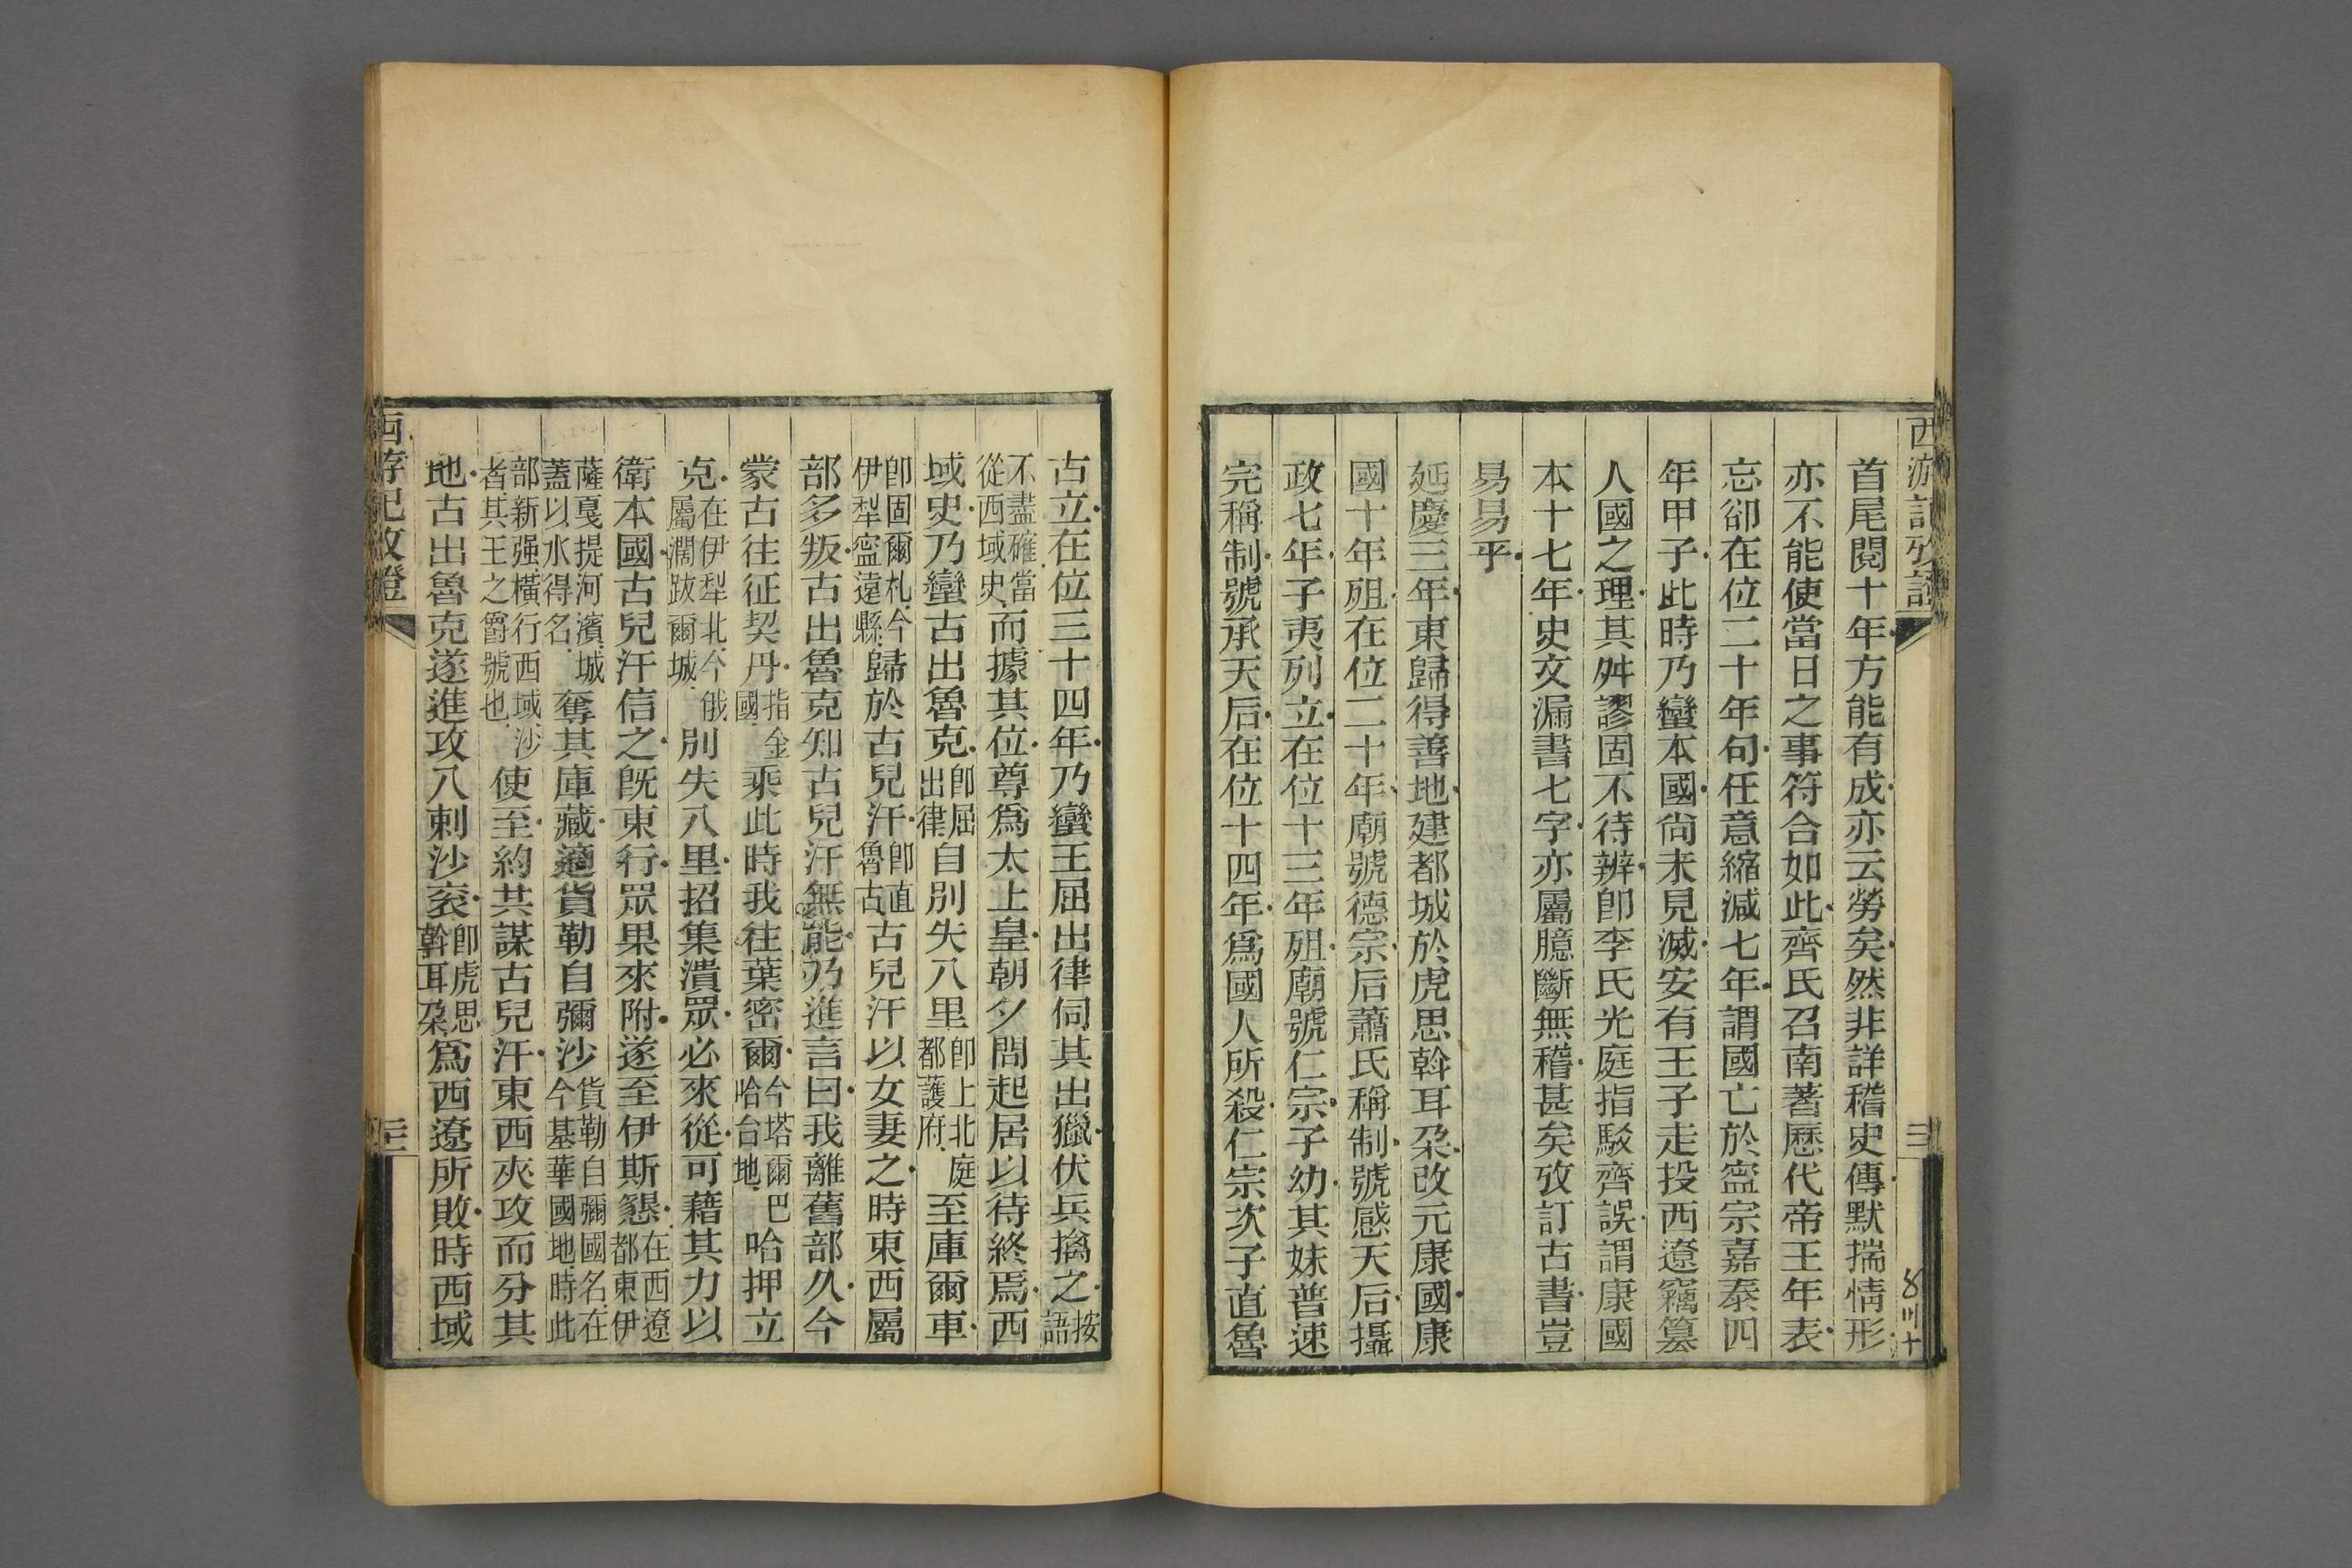 西游記攷證
三
首尾閱十年方能有成亦云勞矣然非詳稽史傳默揣情形
亦不能使當日之事符合如此齊氏召南著歷代帝王年表
忘卻在位二十年句任意縮減七年謂國亡於寍宗嘉泰四
年甲子此時乃蠻本國尙未見滅安有王子走投西遼竊篡
人國之理其舛謬固不待辨卽李氏光庭指駁齊誤謂康國
本十七年史文漏書七字亦屬臆斷無稽甚矣攷訂古書豈
易易乎
延慶三年東歸得善地建都城於虎思斡耳朶改元康國康
國十年殂在位二十年廟號德宗后蕭氏稱制號感天后攝
政七年子夷列立在位十三年殂廟號仁宗子幼其妹普速
完稱制號承天后在位十四年爲國人所殺仁宗次子直魯
古立在位三十四年乃蠻王屈出律伺其出獵伏兵擒之按語
不盡確當從西域史而據其位尊爲太上皇朝夕問起居以待終焉西
域史乃蠻古出魯克卽屈出律自別失八里卽上北庭都護府至庫爾車
卽固爾札今伊犁寍遠縣歸於古兒汗卽直魯古古兒汗以女妻之時東西屬
部多叛古出魯克知古兒汗無能乃進言曰我離舊部久今
蒙古往征契丹指金國乘此時我往葉密爾今塔爾巴哈台地哈押立
克在伊犁北今俄屬濶跋爾城別失八里招集潰眾必來從可藉其力以
衛本國古兒汗信之旣東行眾果來附遂至伊斯懇在西遼都東伊
薩戛提河濱城蓋以水得名奪其庫藏適貨勒自彌沙貨勒自彌國名在今基華國地時此
部新强橫行西域沙者其王之爵號也使至約其謀古兒汗東西夾攻而分其
地古出魯克遂進攻八剌沙袞卽虎思斡耳朶爲西遼所敗時西域
西游記攷證
三